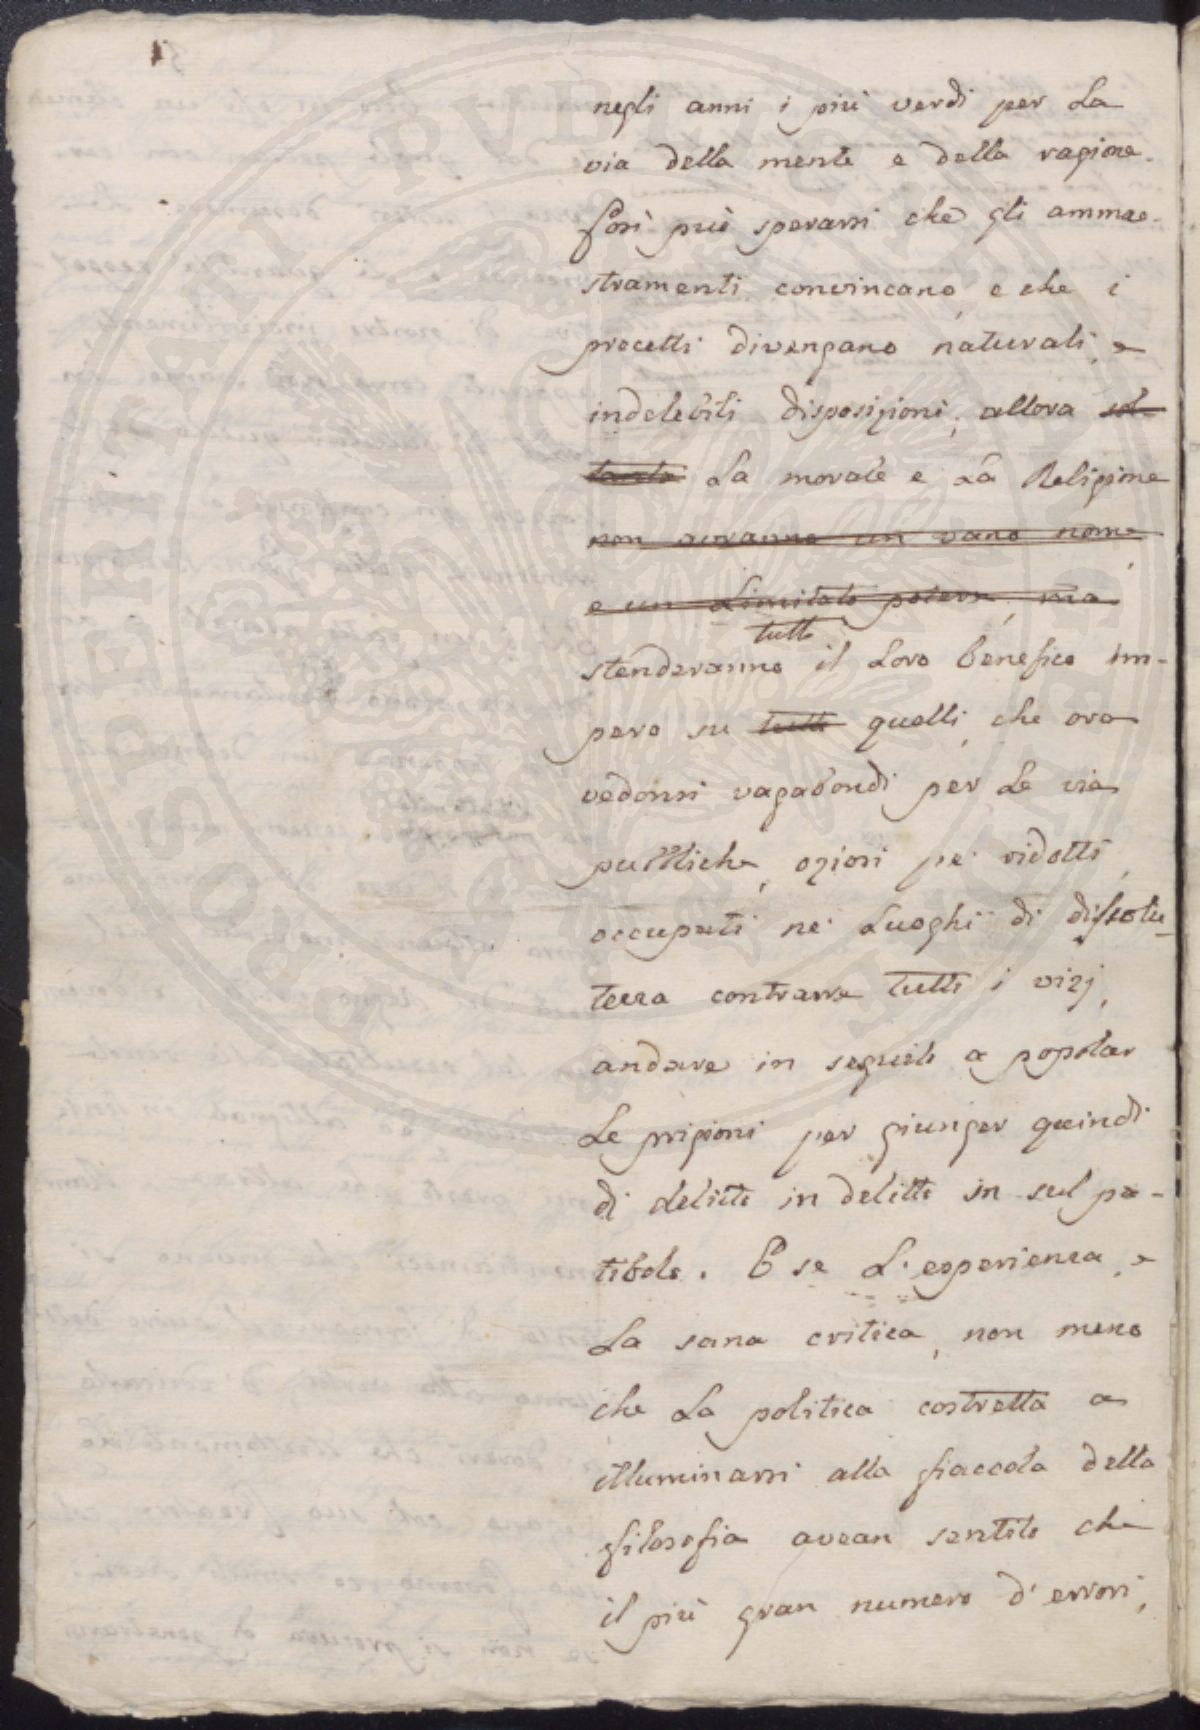 negli anni i più verdi per la
via della mente e della ragione.
Così può sperarsi che gli ammae-
stramenti convincano, e che i
precetti divengano naturali, e
indelebili disposizioni; allora sol-
tanto la morale e la Religione
non avranno un vano nome,
e un limitato potere, ma
tutto
stenderanno il loro benefico im-
pero su tutti quelli, che ora
vedonsi vagabondi per le vie
pubbliche, oziosi pe' ridotti,
occupati ne' luoghi di dissolu-
tezza contrarre tutti i vizj,
andare in seguito a popolar
le prigioni per giunger quindi
di delitto in delitto in sul pa-
tibolo. E se l'esperienza, e
la sana critica, non meno
che la politica costretta a
illuminarsi alla fiaccola della
filosofia avean sentito che
il più gran numero d'errori,